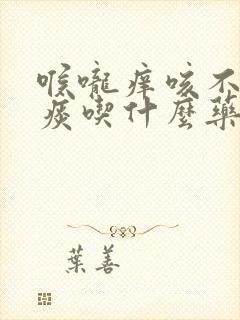 喉嚨痒咳不
痰喫什麼藥
葉善